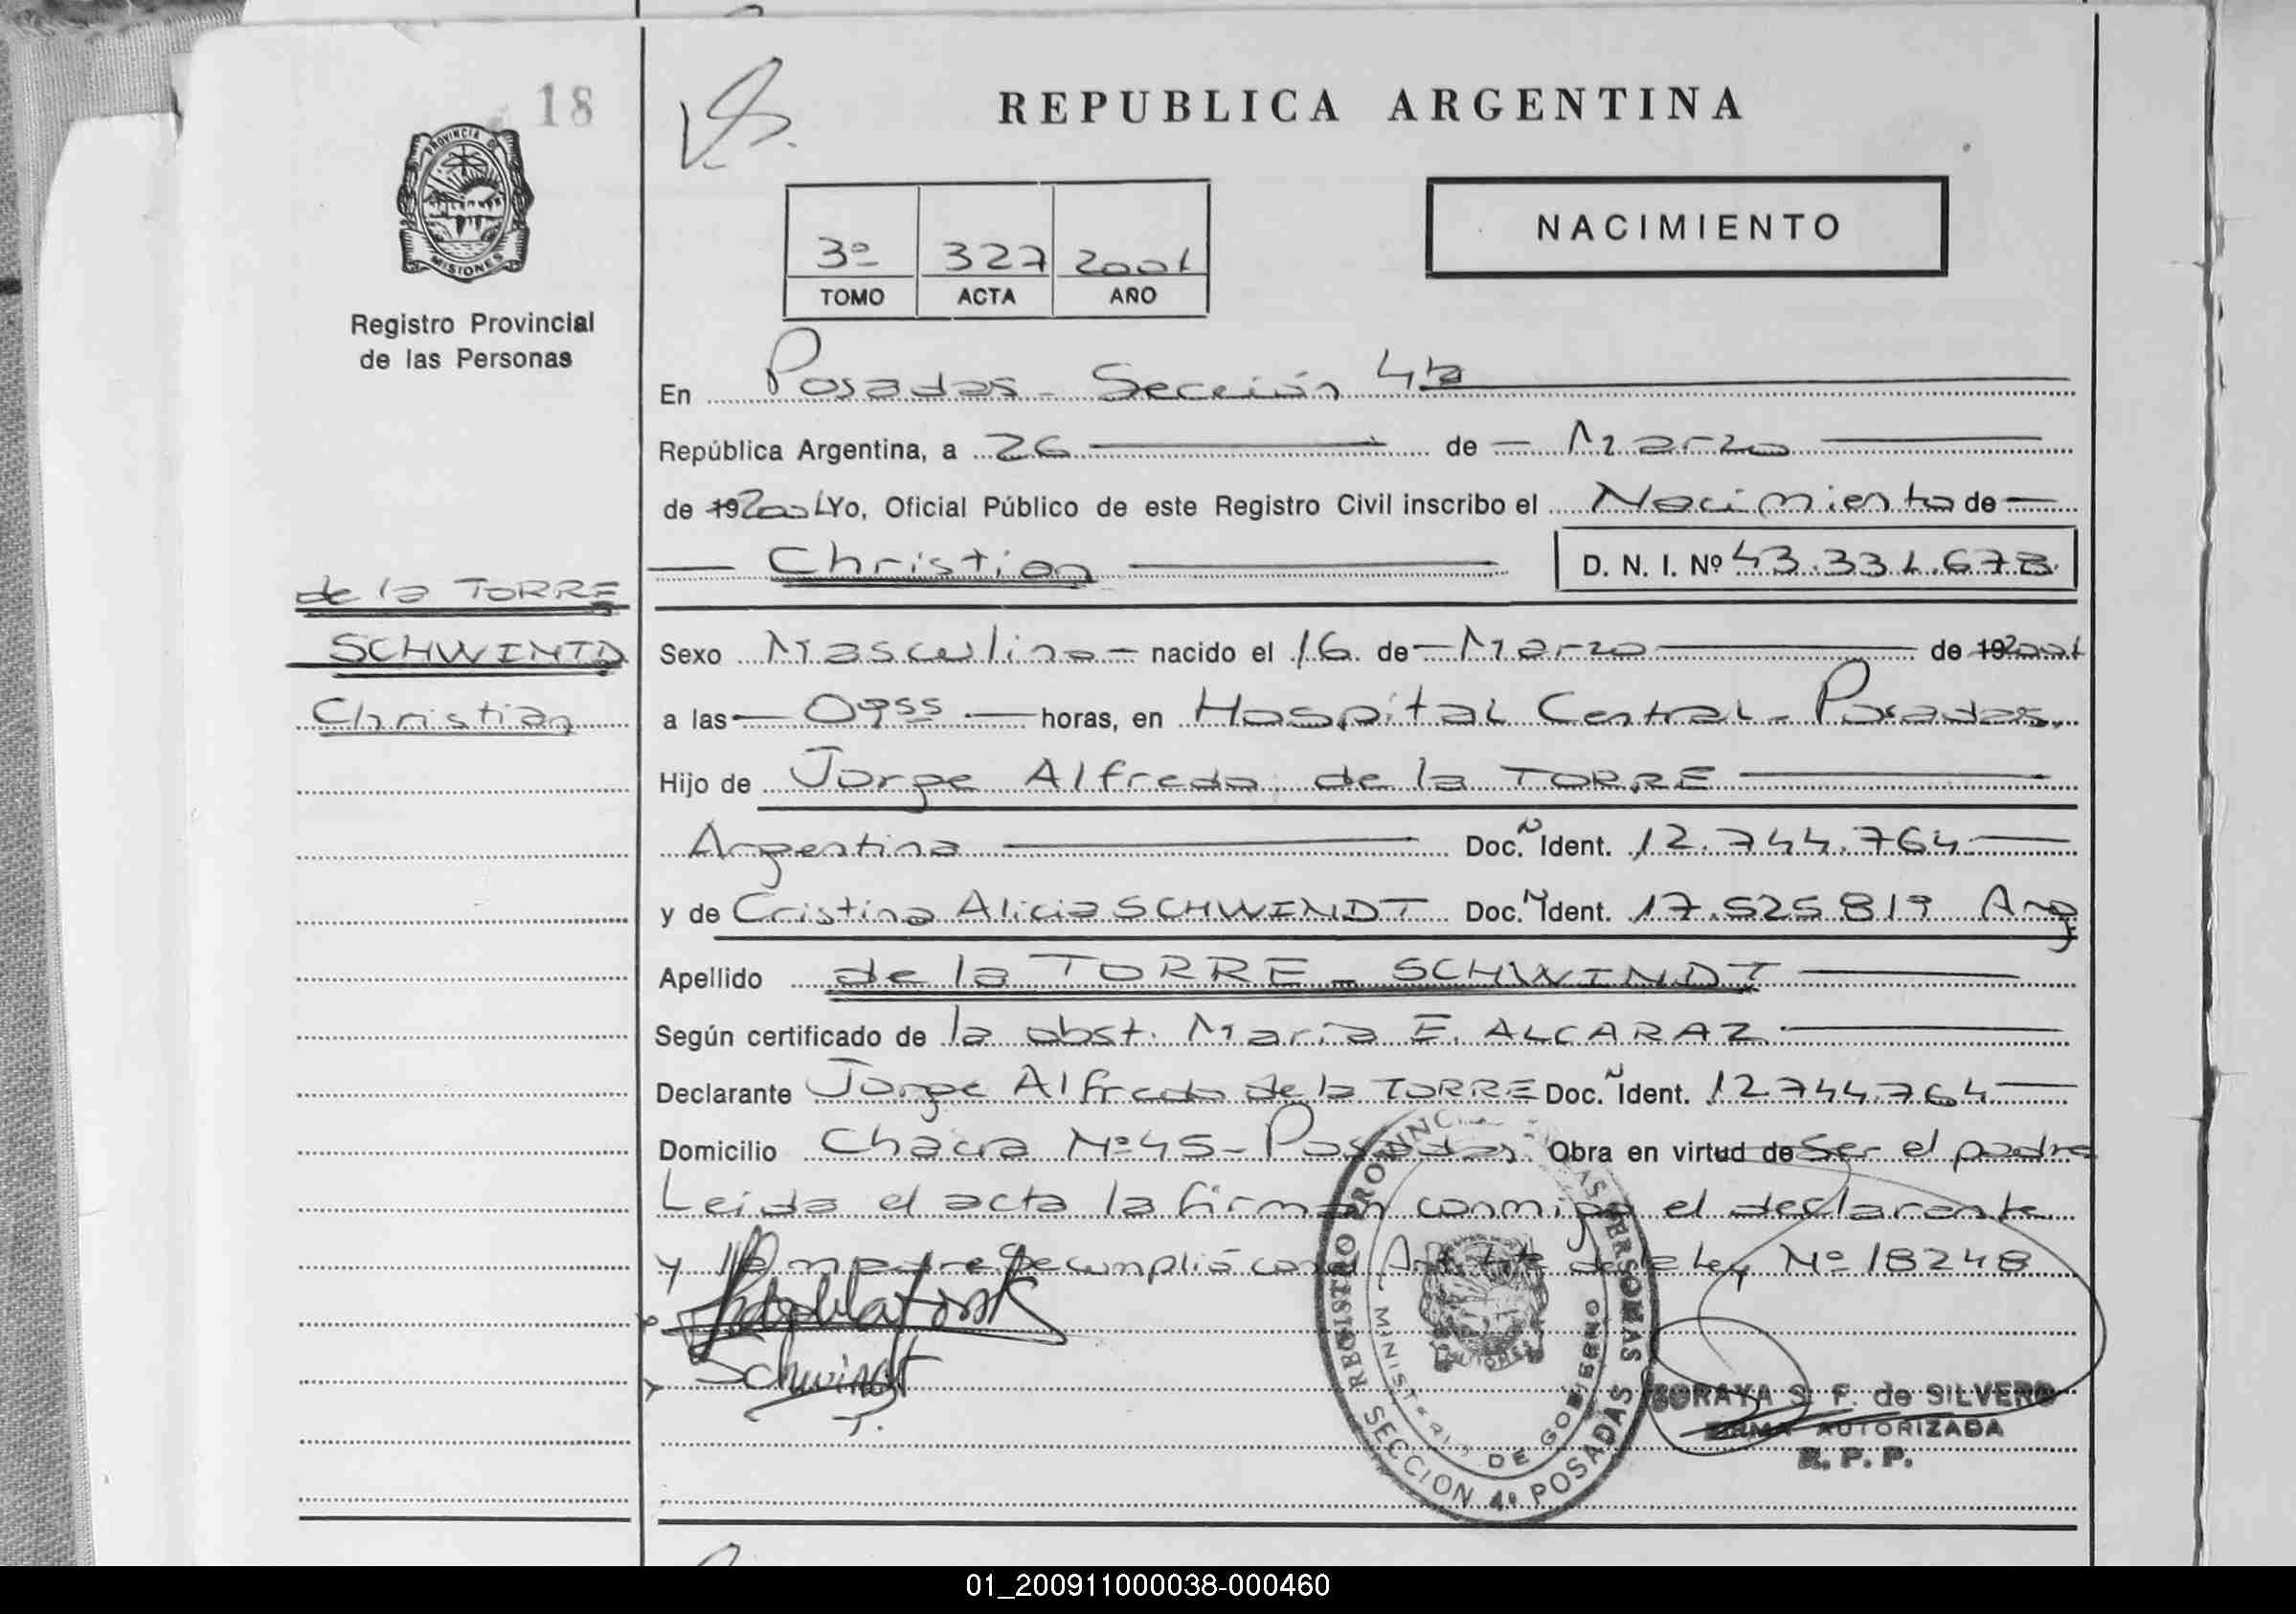 18
REPUBLICA ARGENTINA
PROVINCIA DE
MISIONES
Registro Provincial
de las Personas
NACIMIENTO
3º 327 2001
TOMO ACTA AÑO
En Posadas - Sección 4ta
República Argentina, a 26 de Marzo
de 19 2001 Yo, Oficial Público de este Registro Civil inscribo el Nacimiento de
Christian D. N. I. Nº 43.331.678
de la TORRE
SCHWINTD
Christian
Sexo Masculino nacido el 16 de Marzo de 19 2001
a las 09 55 horas, en Hospital Central - Posadas.
Hijo de Jorge Alfredo de la TORRE
Argentina Doc. N Ident. 12.744.764
y de Cristina Alicia SCHWINDT Doc. N Ident. 17.525.819 Arg
Apellido de la TORRE - SCHWINDT
Según certificado de la obst. María E. ALCARAZ
Declarante Jorge Alfredo de la TORRE Doc. N Ident. 12.744.764
Domicilio Chacra Nº 45 - Posadas Obra en virtud de ser el padre
Leida el acta la firman conmigo el declarante
y la madre Se cumplió con el Art. de la Ley Nº 18248
Schwindt
REGISTRO PROVINCIAL DE LAS PERSONAS
MINISTERIO DE GOBIERNO
SECCION 4ª POSADAS
SORAYA S. F. de SILVERO
FIRMA AUTORIZADA
R. P. P.
01_200911000038-000460